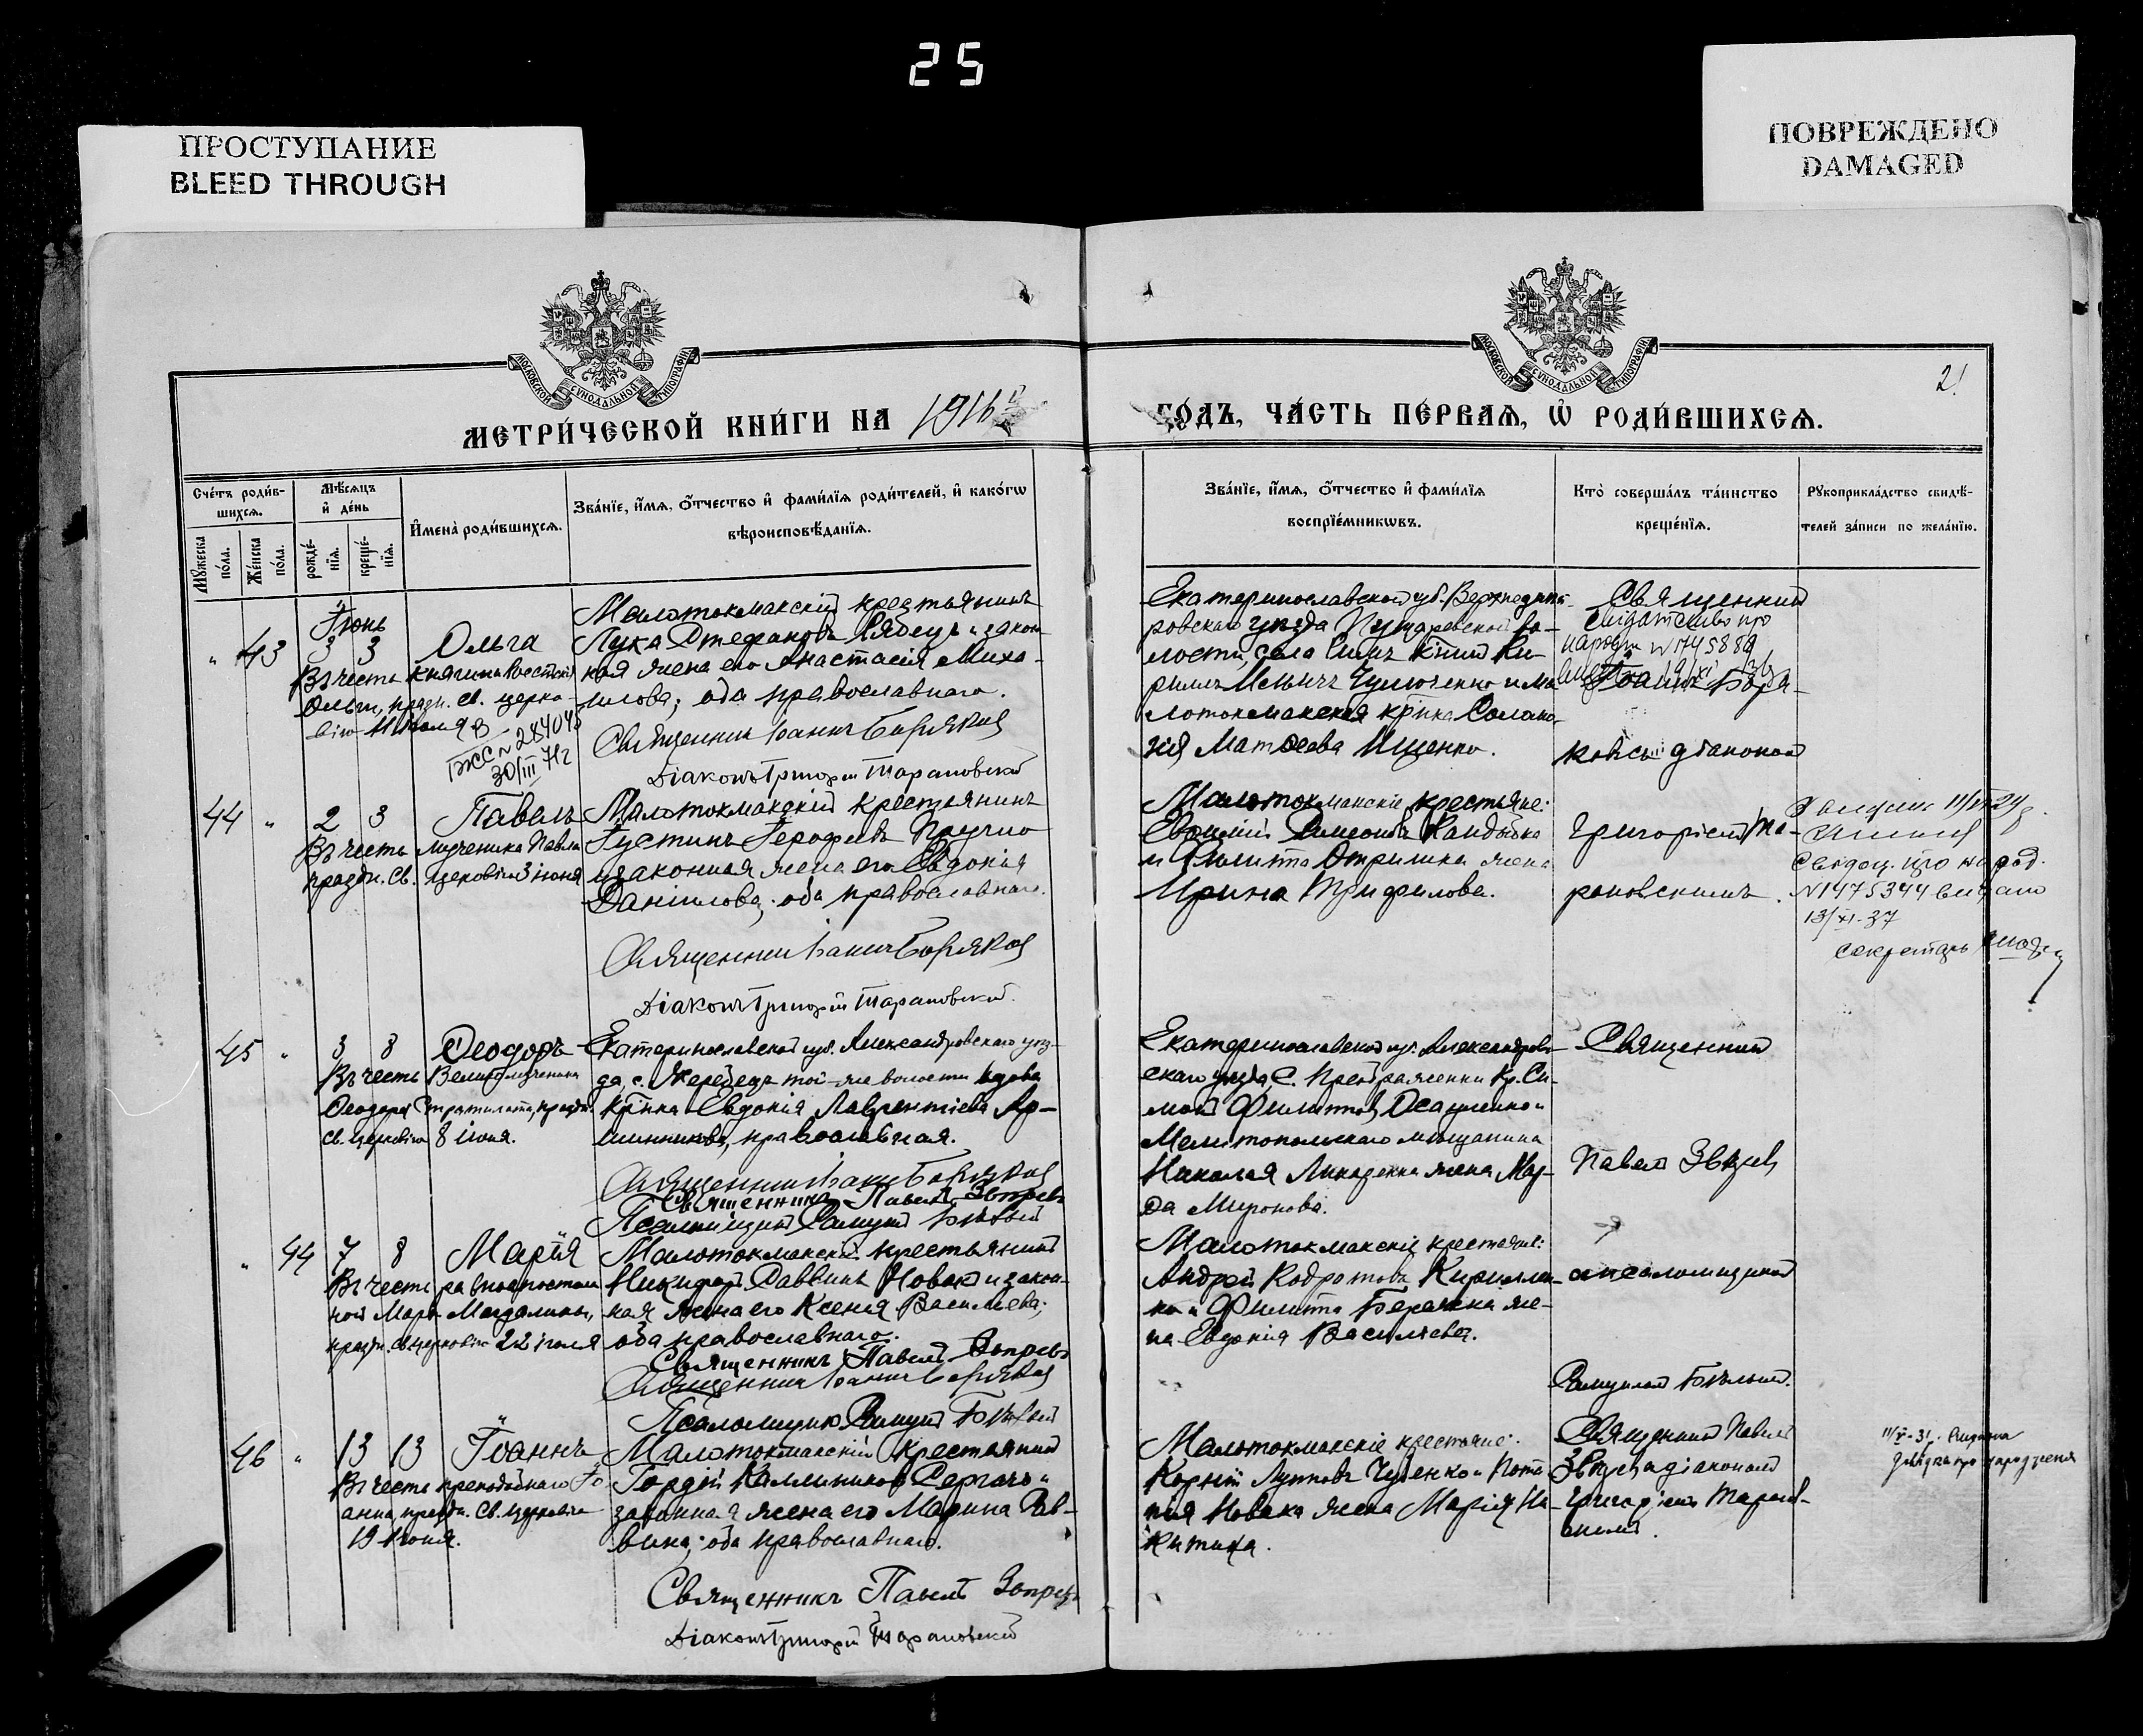 25
ПРОСТУПАНИЕ
BLEED THROUGH
ПОВРЕЖДЕНО
DAMAGED
МОСКОВСКОЙ СУНОДАЛЬНОЙ ТИПОГРАФІИ
МОСКОВСКОЙ СУНОДАЛЬНОЙ ТИПОГРАФІИ
21
МЕТРИ́ЧЕСКОЙ КНИ́ГИ НА 1916й
ГО́ДЪ, ЧА́СТЬ ПЕ́РВАѦ, Ѡ҆ РОДИ́ВШИХСѦ.
Сче́тъ роди́в-
шихсѧ.
Мꙋ́жеска по́ла.
Же́нска по́ла.
Мѣ́сѧцъ
и҆ де́нь
рожде́-
нїѧ.
креще́-
нїѧ.
И҆мена̀ роди́вшихсѧ.
Зва́нїе, и҆́мѧ, ѻ҆́тчество и҆ фами́лїѧ роди́телей, и҆ како́гѡ
вѣроисповѣ́данїѧ.
Зва́нїе, и҆́мѧ, ѻ҆́тчество и҆ фами́лїѧ
воспрїе́мникѡвъ.
Кто̀ соверша́лъ та́инство
креще́нїѧ.
Рꙋкоприкла́дство свидѣ́-
телей за́писи по жела́нїю.
Іюнь
" 43 3 3 Ольга
Въ честь княгини Россійск.
Ольги, праздн. св. церко-
вію 11 іюля
28404
30/III 71г
Малотокмакскій крестьянинъ
Лука Стефановъ Рябецъ и закон-
ная жена его Анастасія Миха-
илова; оба православнаго.
Священникъ Іоаннъ Боряков
Діаконъ Григорій Тарановскій
Екатеринославской губ. Верхнеднѣп-
ровскаго уѣзда Пушкаревской во-
лости, села
и Ма-
лотокмакская кр-нка Солома-
нія Матѳеева Ищенко.
Священник
Іоаннъ Боря-
ковъ съ діаконом
44 " 2 3 Павелъ
Въ честь мученика Павла
праздн. св. церковію 3 іюня
Малотокмакскій крестьянинъ
Іустинъ Герофеевъ
и законная жена его Евдокія
Даніилова; оба православнаго.
Священник Іоаннъ Боряков
Діаконъ Григорій Тарановскій.
Малотокмакскіе крестьяне:
Евфимій Симеоновъ Кандыбка
и Филиппа жена
Ирина Трифилова.
Григоріем Та-
рановскимъ.
N1475344 видано
13/XI-37
секретарь
45 " 3 8 Ѳеодоръ
Въ честь Великомученика
Ѳеодора Стратилата, праздн.
св. церковію 8 іюня.
Екатеринославской губ. Александровскаго уѣз-
да, с. Жеребецъ той-же волости вдова
кр-нка Евдокія Лаврентіева
православная.
Священник Іоаннъ Боряков
Священникъ Павелъ Звѣревъ
Псаломщикъ Бѣлый
Екатеринославской губ. Александров-
скаго уѣзда, С. Преображенки Кр. Си-
мон Филиппов Осадченко и
Мелитопольскаго мѣщанина
Николая жена Мар-
ѳа Миронова.
Священник
Павел Звѣрев
" 44 7 8 Марія
Въ честь равноапостоль-
ной Маріи Магдалины,
праздн. св. церковію 22 іюля
Малотокмакскій крестьянинъ
Никифор Саввинъ Новак и закон-
ная жена его Ксенія Васильева;
оба православнаго.
Священникъ Павелъ Звѣревъ
Священник Іоаннъ Боряков
Псаломщикъ Бѣлый
Малотокмакскіе крестьяне:
Андрей Кодратовъ Кириллен-
ко и Филиппа Бережка же-
на Евдокія Васильева.
с псаломщиком
Бѣлым.
46 " 13 13 Іоаннъ
Въ честь преподобнаго Іо-
анна, праздн. св. церковію
19 іюня.
Малотокмакскій крестьянинъ
Гордій Каллиников Сергачъ и
законная жена его Марина Сав-
вина; оба православнаго.
Священникъ Павелъ Звѣревъ
Діаконъ Григорій Тарановскій
Малотокмакскіе крестьяне:
Корній Чубенко и
Новака жена Марія Ни-
китина.
Священник Павел
Звѣрев с діаконом
Григоріем Таранов-
ским.